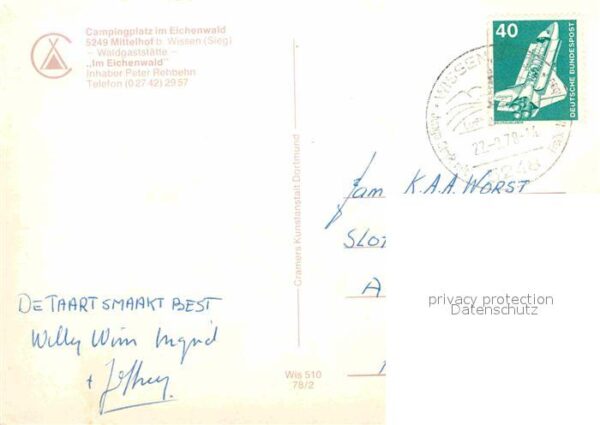 Campingplatz im Eichenwald
5249 Mittelhof b. Wissen (Sieg)
– Waldgaststätte –
„Im Eichenwald"
Inhaber Peter Rehbehn
Telefon (0 27 42) 29 57
40
DEUTSCHE BUNDESPOST
WISSEN
22.-9.78-14
5248
Cramers Kunstanstalt Dortmund
Fam K.A.A. WORST
SLOT
A
DE TAART SMAAKT BEST
Willy Wim Ingrid
+ Jeffrey
Wis 510
78/2
privacy protection
Datenschutz